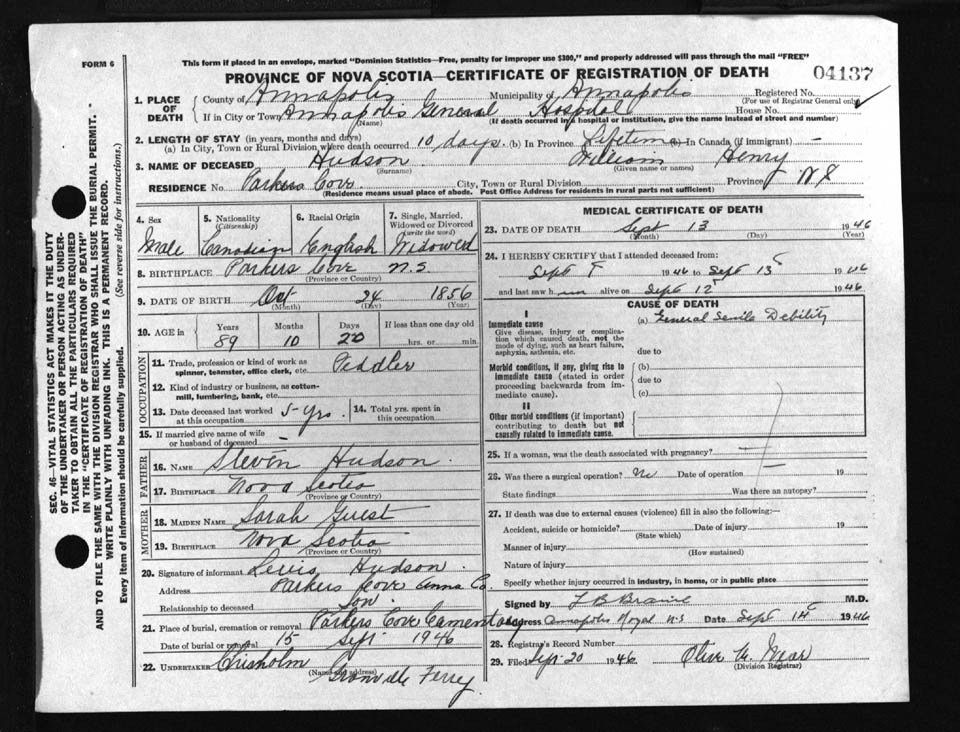 FORM 6
This form if placed in an envelope, marked "Dominion Statistics—Free, penalty for improper use $300," and properly addressed will pass through the mail "FREE"
PROVINCE OF NOVA SCOTIA—CERTIFICATE OF REGISTRATION OF DEATH 04137
1. PLACE OF DEATH County of Annapolis Municipality of Annapolis Registered No.
(For use of Registrar General only)
If in City or Town Annapolis General Hospital House No.
(Name) (If death occurred in a hospital or institution, give the name instead of street and number)
2. LENGTH OF STAY (in years, months and days)
(a) In City, Town or Rural Division where death occurred 10 days. (b) In Province Lifetime (b) In Canada (if immigrant) —
3. NAME OF DECEASED Hudson William Henry
(Surname) (Given name or names)
RESIDENCE No Parkers Cove City, Town or Rural Division Province N S
(Residence means usual place of abode. Post Office Address for residents in rural parts not sufficient)
SEC. 46—VITAL STATISTICS ACT MAKES IT THE DUTY
OF THE UNDERTAKER OR PERSON ACTING AS UNDER-
TAKER TO OBTAIN ALL THE PARTICULARS REQUIRED
IN THE "CERTIFICATE OF REGISTRATION OF DEATH"
AND TO FILE THE SAME WITH THE DIVISION REGISTRAR WHO SHALL ISSUE THE BURIAL PERMIT.
WRITE PLAINLY WITH UNFADING INK. THIS IS A PERMANENT RECORD.
Every item of information should be carefully supplied. (See reverse side for instructions.)
4. Sex 5. Nationality (Citizenship) 6. Racial Origin 7. Single, Married, Widowed or Divorced (write the word)
Male Canadian English Widowed
8. BIRTHPLACE Parkers Cove N.S.
(Province or Country)
9. DATE OF BIRTH Oct 24 1856
(Month) (Day) (Year)
10. AGE in Years Months Days If less than one day old
89 10 20 hrs. or min.
OCCUPATION
11. Trade, profession or kind of work as spinner, teamster, office clerk, etc. Peddler
12. Kind of industry or business, as cotton-mill, lumbering, bank, etc.
13. Date deceased last worked at this occupation 5-yrs. 14. Total yrs. spent in this occupation
15. If married give name of wife or husband of deceased —
FATHER
16. NAME Steven Hudson
17. BIRTHPLACE Nova Scotia
(Province or Country)
MOTHER
18. MAIDEN NAME Sarah Guest
19. BIRTHPLACE Nova Scotia
(Province or Country)
20. Signature of informant Lewis Hudson
Address Parkers Cove Anna Co.
Relationship to deceased Son
21. Place of burial, cremation or removal Parkers Cove Camentary
Date of burial or removal 15 Sept 1946
22. UNDERTAKER Chisholm Granville Ferry.
(Name and address)
MEDICAL CERTIFICATE OF DEATH
23. DATE OF DEATH Sept 13 1946
(Month) (Day) (Year)
24. I HEREBY CERTIFY that I attended deceased from:
Sept 1946 to Sept 13 1946
and last saw him alive on Sept 12 1946
CAUSE OF DEATH
I
Immediate cause (a) General Senile Debility
Give disease, injury or complication which caused death, not the mode of dying, such as heart failure, asphyxia, asthenia, etc. due to
Morbid conditions, if any, giving rise to immediate cause (stated in order proceeding backwards from immediate cause). (b)
due to
(c)
II
Other morbid conditions (if important) contributing to death but not causally related to immediate cause.
25. If a woman, was the death associated with pregnancy? —
26. Was there a surgical operation? No Date of operation 19
State findings Was there an autopsy?
27. If death was due to external causes (violence) fill in also the following:—
Accident, suicide or homicide? Date of injury 19
(State which)
Manner of injury
(How sustained)
Nature of injury
Specify whether injury occurred in industry, in home, or in public place
Signed by L B Braine M.D.
Address Annapolis Royal N.S Date Sept 14 1946
28. Registrar's Record Number
29. Filed Sept 20 1946
(Division Registrar)